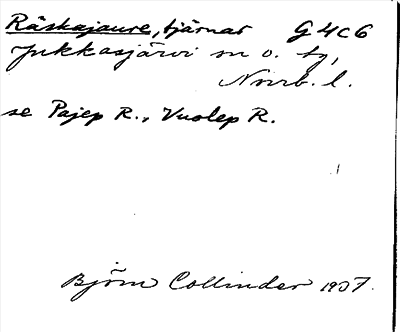 Räskajaure, tjärnar G4c6
Jukkasjärvi sn o. tg,
Norrb. l.
se Pajep R., Vuolep R.
Björn Collinder 1937.